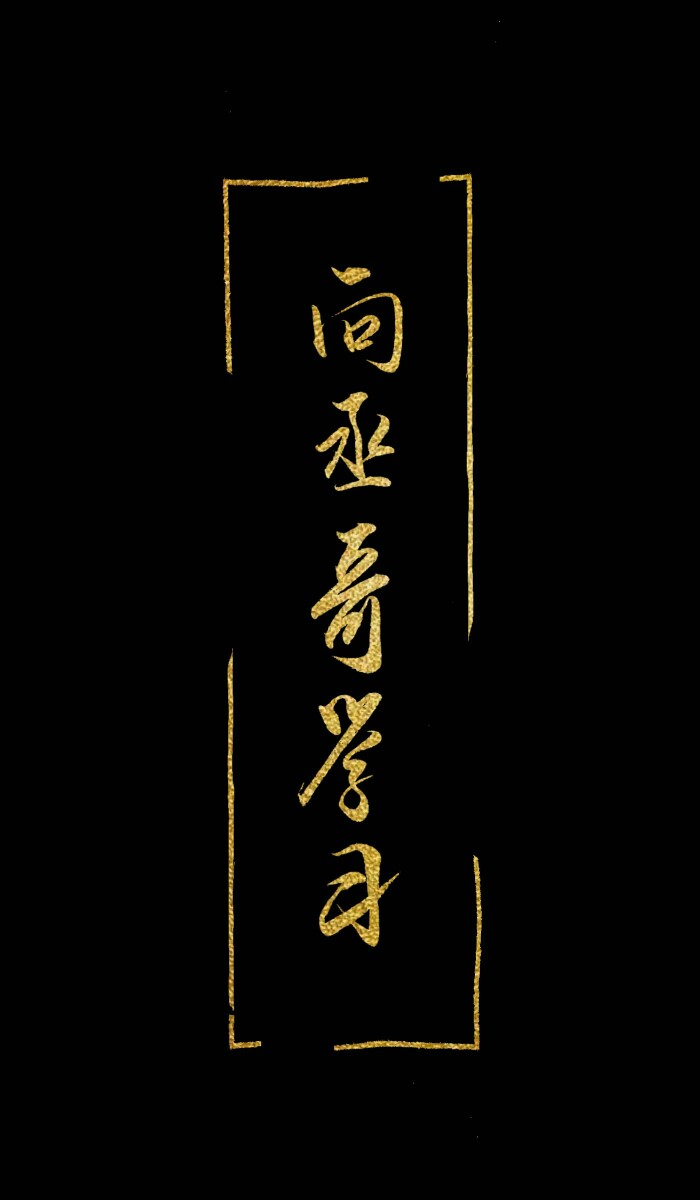 向丞哥学习